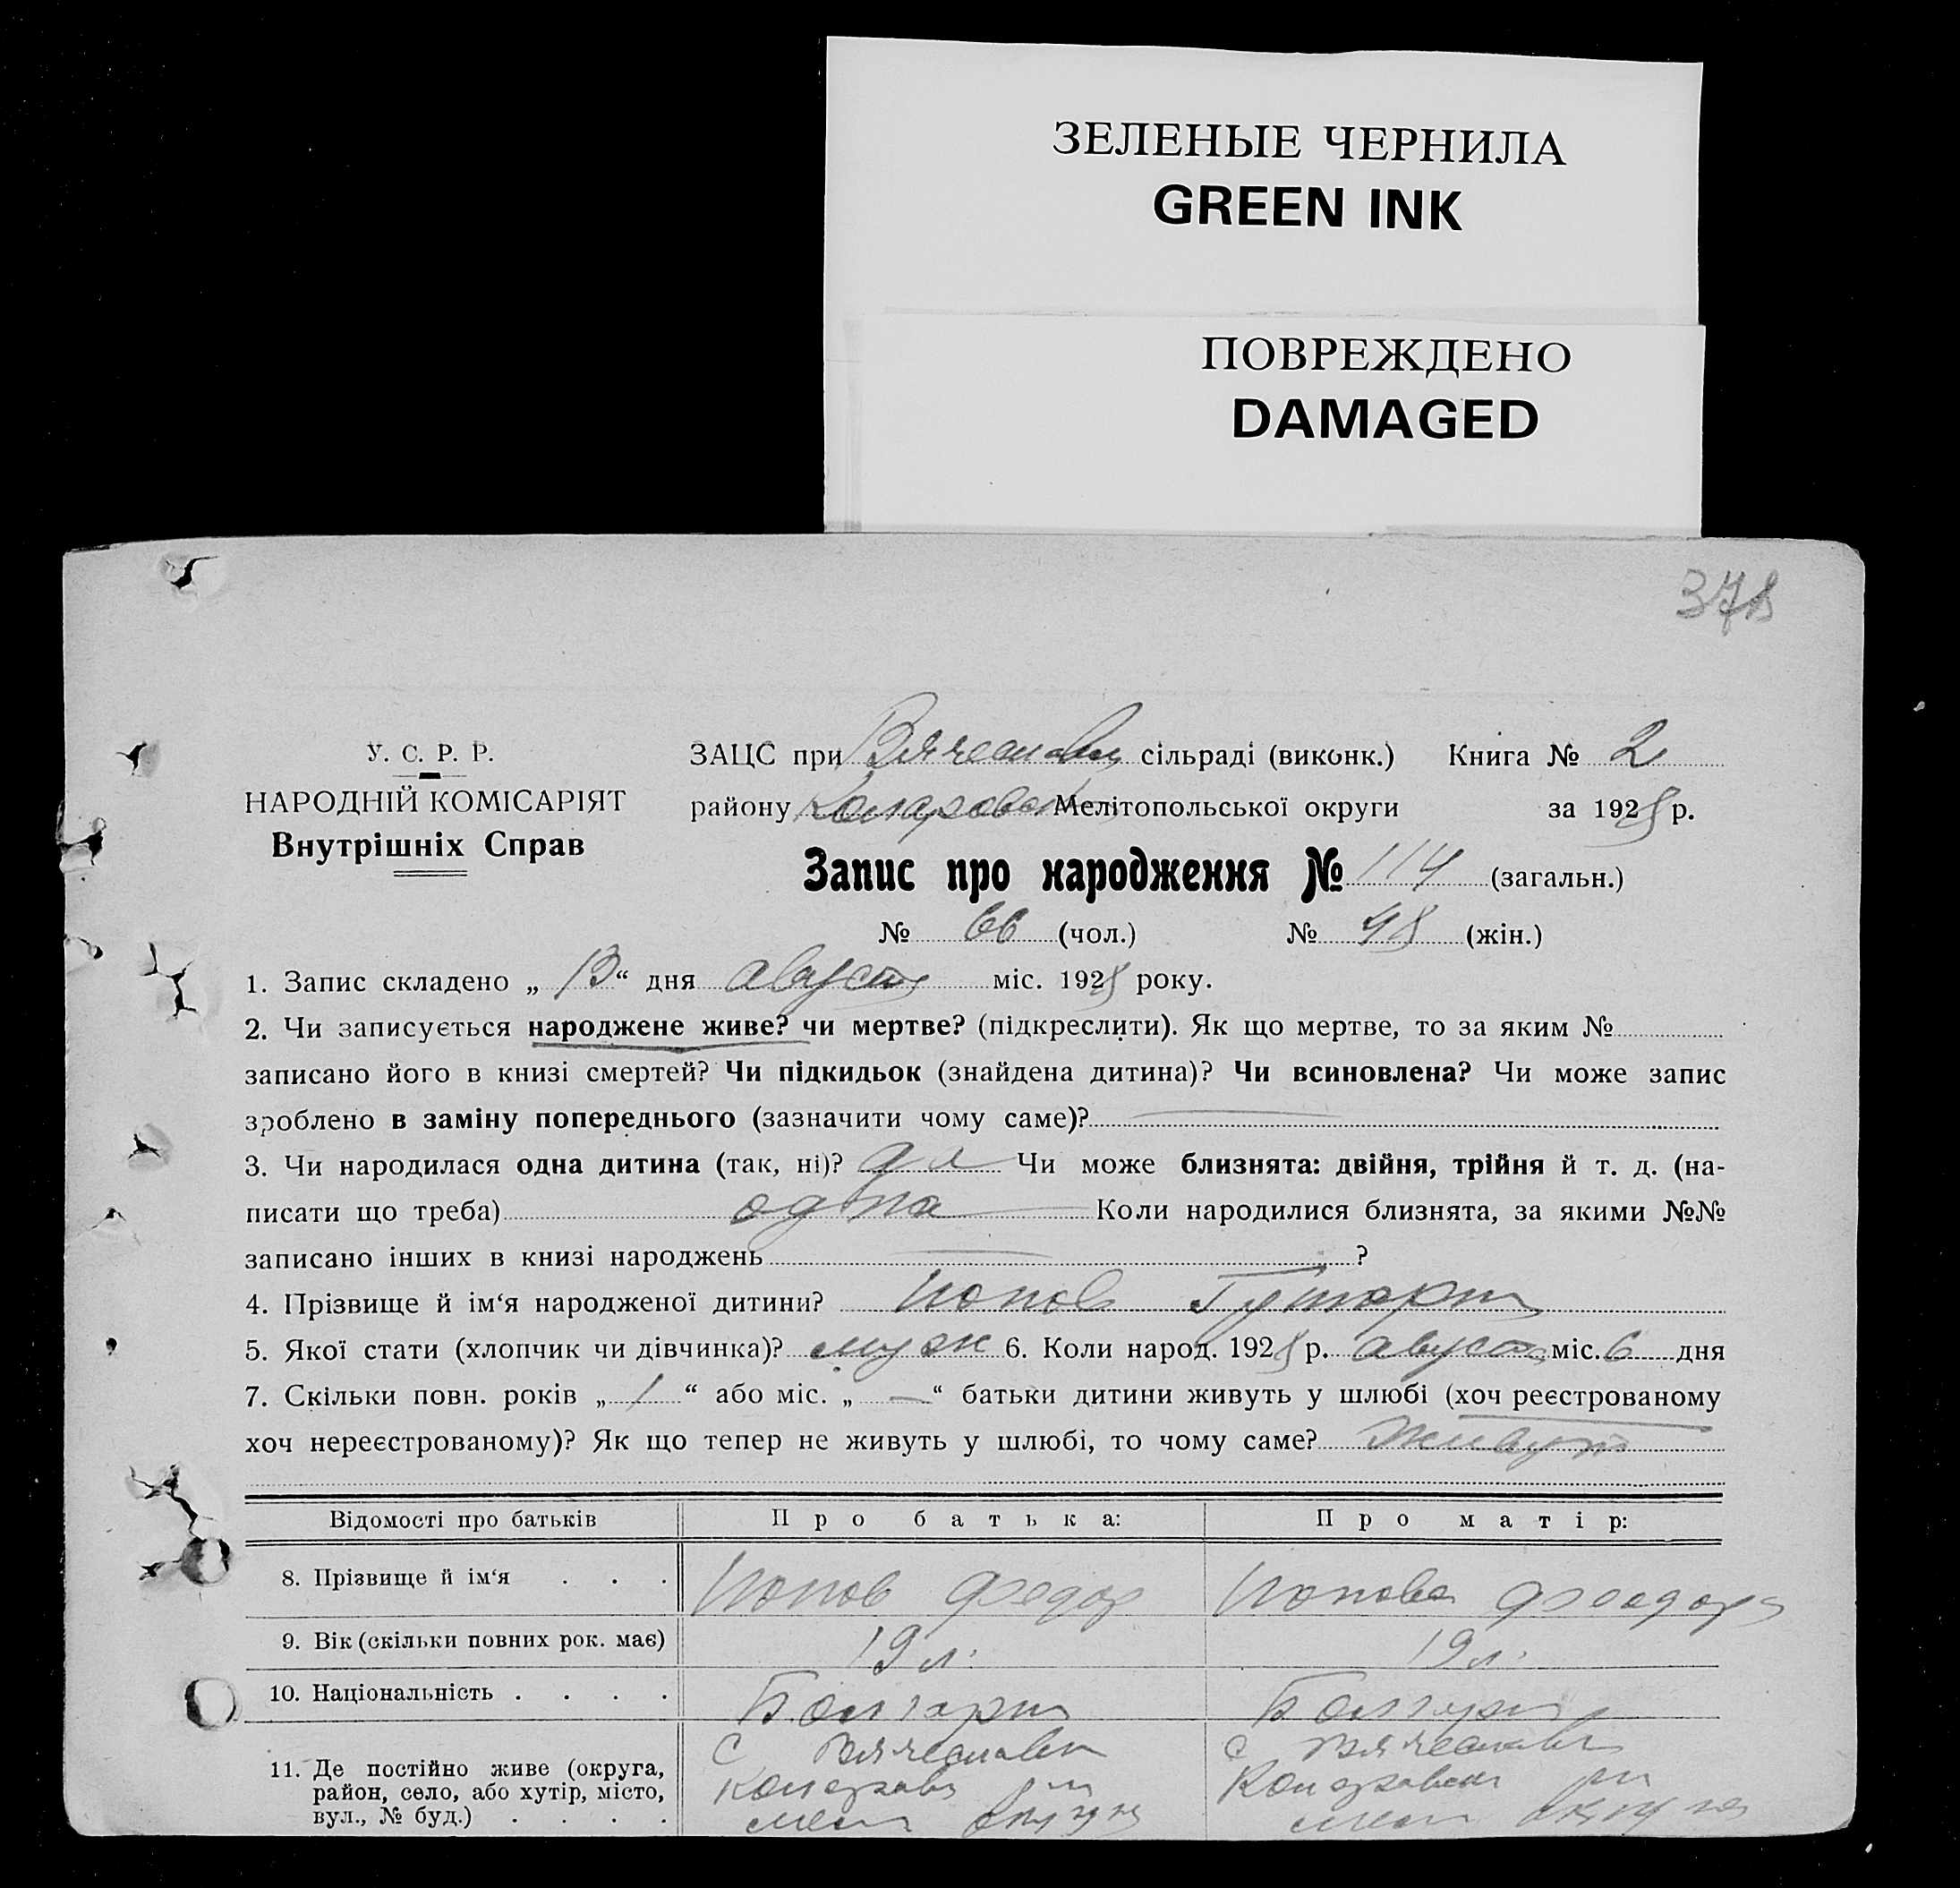 ЗЕЛЕНЫЕ ЧЕРНИЛА
GREEN INK
ПОВРЕЖДЕНО
DAMAGED
378
У. С. Р. Р.
НАРОДНІЙ КОМІСАРІЯТ
Внутрішніх Справ
ЗАЦС при сільраді (виконк.) Книга № 2
району Мелітопольської округи за 1928 р.
Запис про народження № 114 (загальн.)
№ 66 (чол.) № 48 (жін.)
1. Запис складено „ 13 “ дня августа міс. 1928 року.
2. Чи записується народжене живе? чи мертве? (підкреслити). Як що мертве, то за яким №
записано його в книзі смертей? Чи підкидьок (знайдена дитина)? Чи всиновлена? Чи може запис
зроблено в заміну попереднього (зазначити чому саме)?
3. Чи народилася одна дитина (так, ні)? да Чи може близнята: двійня, трійня й т. д. (на-
писати що треба) одна Коли народилися близнята, за якими №№
записано інших в книзі народжень ?
4. Прізвище й ім‘я народженої дитини? Попов
5. Якої стати (хлопчик чи дівчинка)? муж 6. Коли народ. 1928 р. августа міс. 6 дня
7. Скільки повн. років „ 1 “ або міс. „ — “ батьки дитини живуть у шлюбі (хоч реєстрованому
хоч нереєстрованому)? Як що тепер не живуть у шлюбі, то чому саме? живут
Відомості про батьків Про батька: Про матір:
8. Прізвище й ім‘я . . . Попов Федор Попова Феодора
9. Вік (скільки повних рок. має) 19 л. 19 л.
10. Національність . . . . Болгарин
11. Де постійно живе (округа, с с
район, село, або хутір, місто,
вул., № буд.) . . . . мел округа мел округа